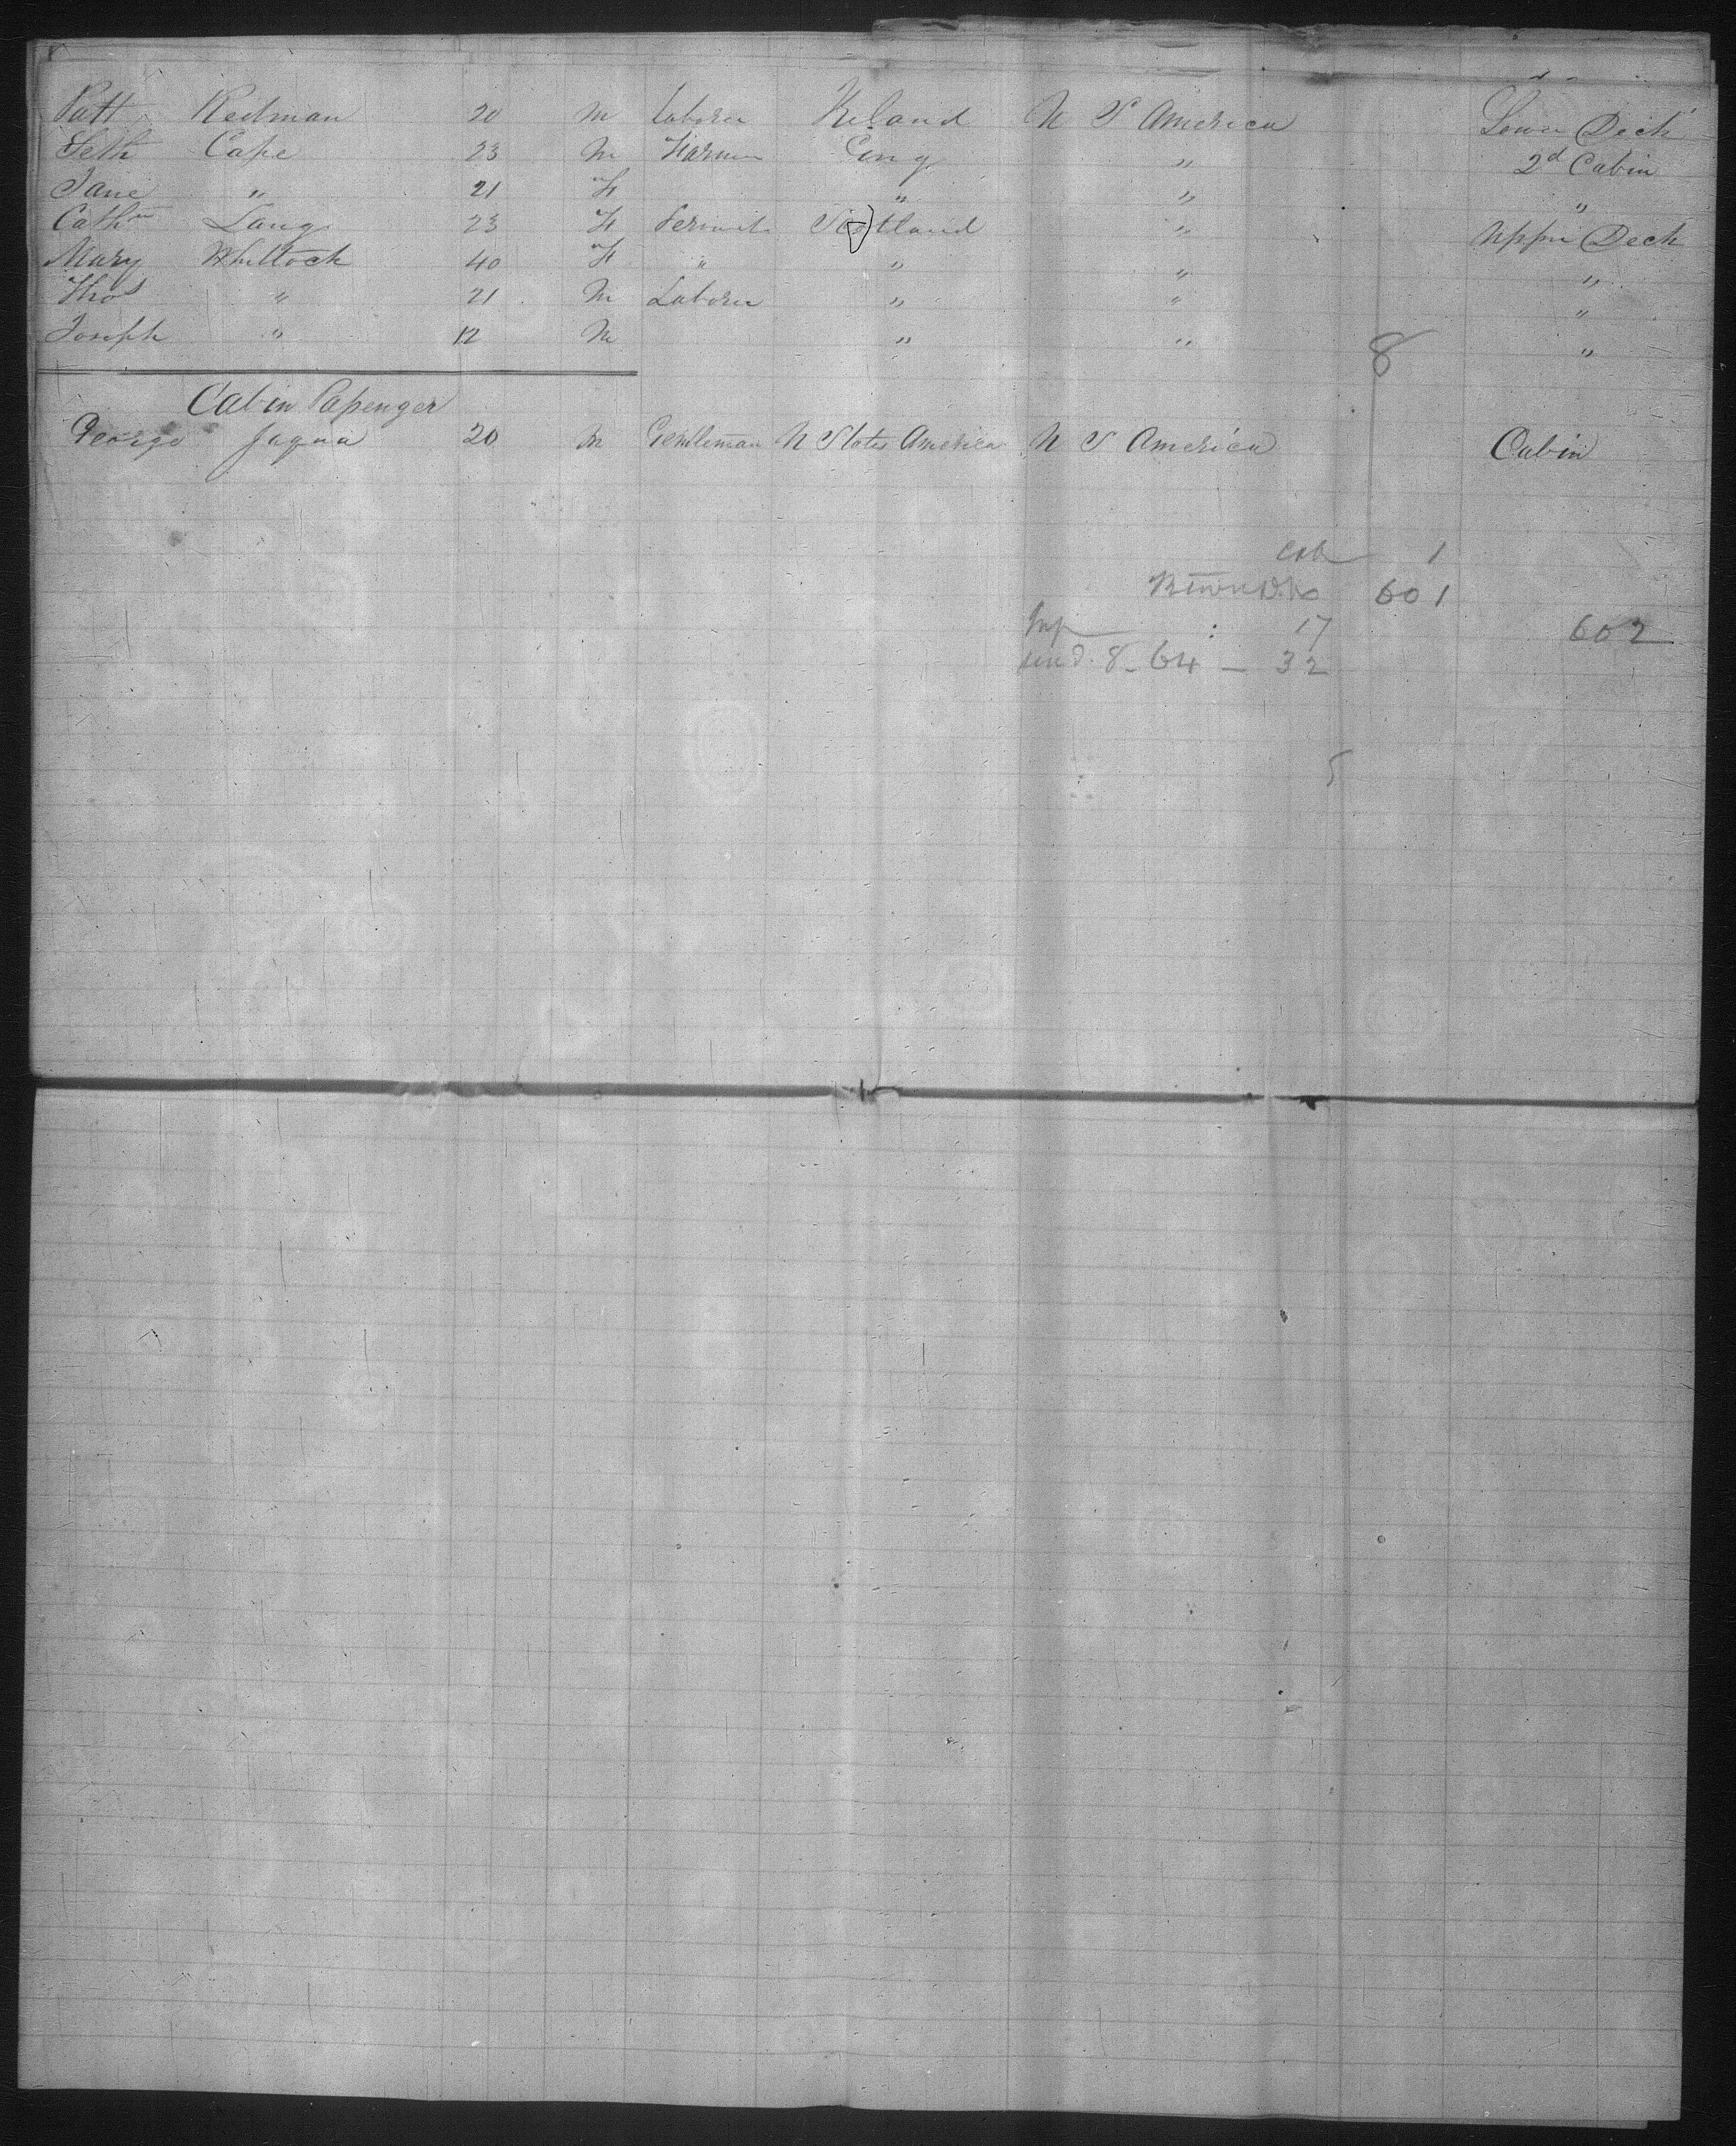 Patt Redman 20 M Laborer Ireland U S America Lower Deck
Seth Cape 23 M Farmer Eng " 2d Cabin
Jane " 21 F " " "
Cathn Lang 23 F Servant Scotland " Upper Deck
Mary Whittock 40 F " " " "
Thos " 21 M Laborer " " "
Joseph " 12 M " " "
8
Cabin Passenger
George Jaqua 20 M Gentleman U States America U S America Cabin
Cab 1
601
Inf 17 602
und. 8 - 64 - 32